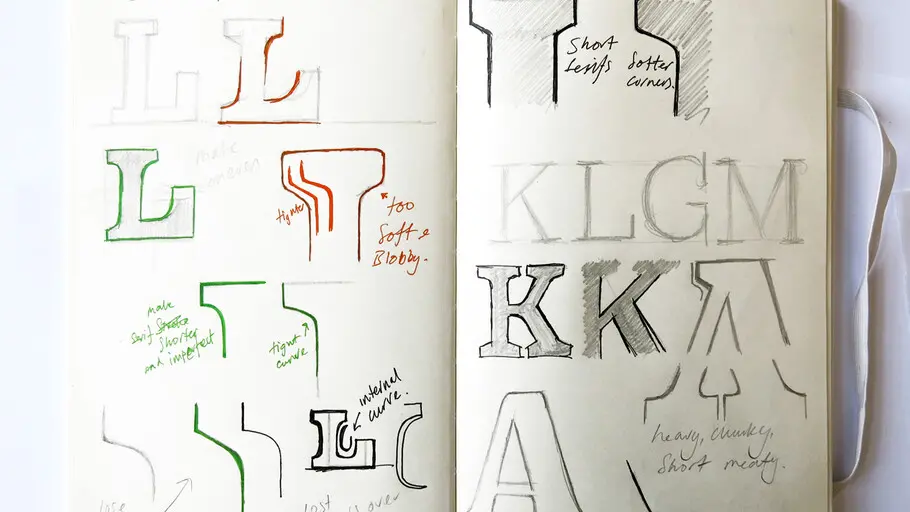 L L
make
uneven
L T
tighter
too
Soft &
Blobby.
make
serif Stroke
Shorter
and imperfect
tight
curve
internal
curve.
L
lose
lost
over
Short
Serifs
Softer
corners.
KLGM
K K A
heavy, chunky,
Short meaty.
A